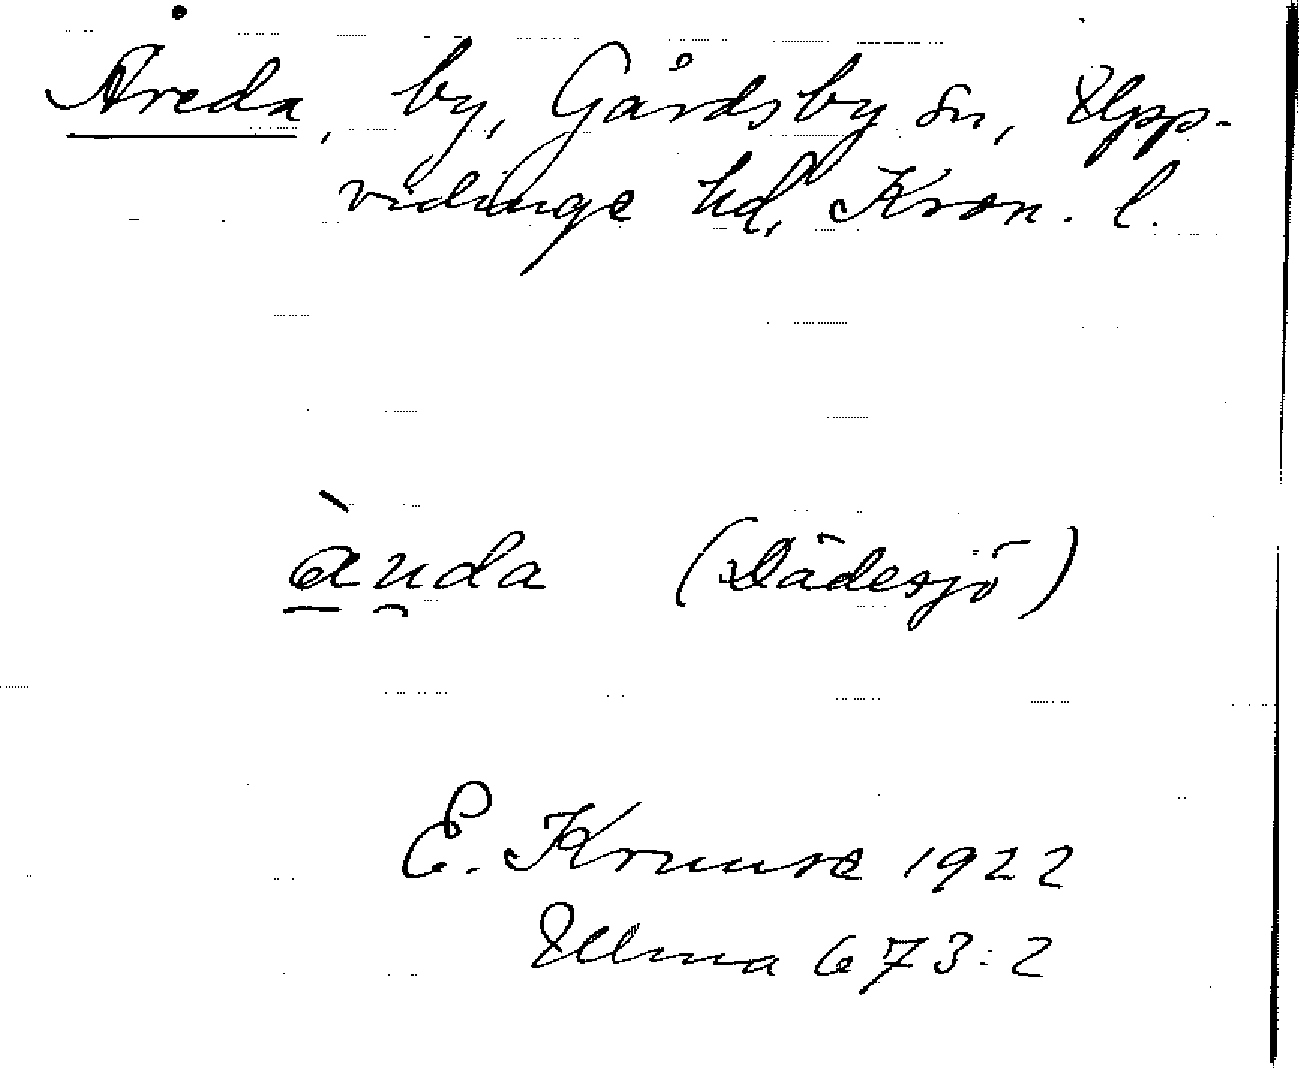 Åreda, by, Gårdsby sn, Upp-
vidinge hd, Kron. l.
ànda (Dädesjö)
E. Kruuse 1922
Ulma 673:2